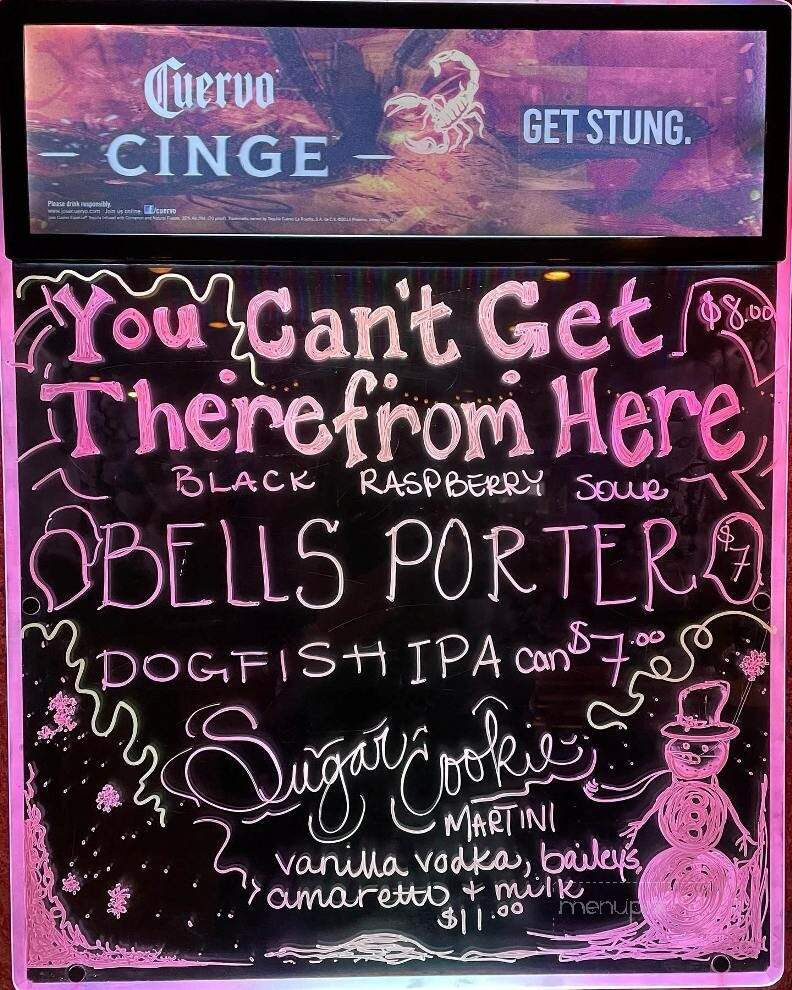 Cuervo
CINGE
GET STUNG.
Please drink responsibly.
www.josecuervo.com Join us online. f/cuervo
You Can't Get $8.00
There from Here
BLACK RASPBERRY SOUR
BELLS PORTER $7
DOGFISH IPA can $7.00
Sugar Cookie
MARTINI
vanilla vodka, baileys,
amaretto + milk
$11.00